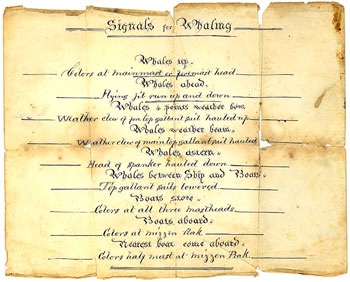 Signals for Whaling
Whales up.
Colors at mainmast or foremast head.
Whales ahead.
Flying jib run up and down
Whales 4 points weather bow.
Weather clew of fore top gallant sail hauled up
Whales weather beam.
Weather clew of main top gallant sail hauled
Whales astern.
Head of spanker hauled down.
Whales between Ship and Boats.
Top gallant sails lowered.
Boats stove.
Colors at all three mastheads.
Boats aboard.
Colors at mizzen Peak.
Nearest boat come aboard.
Colors half mast at mizzen Peak.